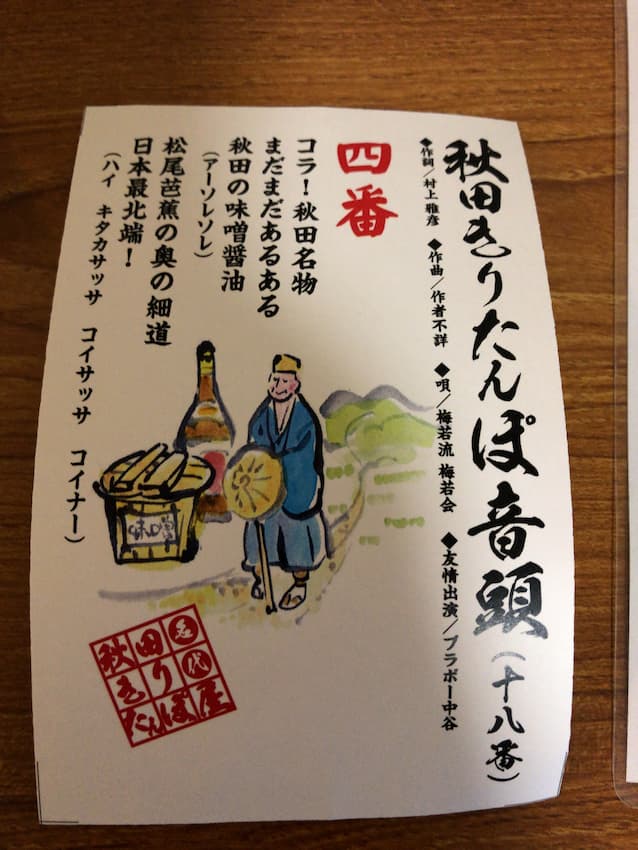 秋田きりたんぽ音頭(十八番)
◆作詞/村上雅彦 ◆作曲/作者不詳 ◆唄/梅若流 梅若会 ◆友情出演/ブラボー中谷
四番
コラ!秋田名物
まだまだあるある
秋田の味噌醤油
(アーソレソレ)
松尾芭蕉の奥の細道
日本最北端!
(ハイ キタカサッサ コイサッサ コイナー)
味噌
秋田名代
きり
たんぽ屋